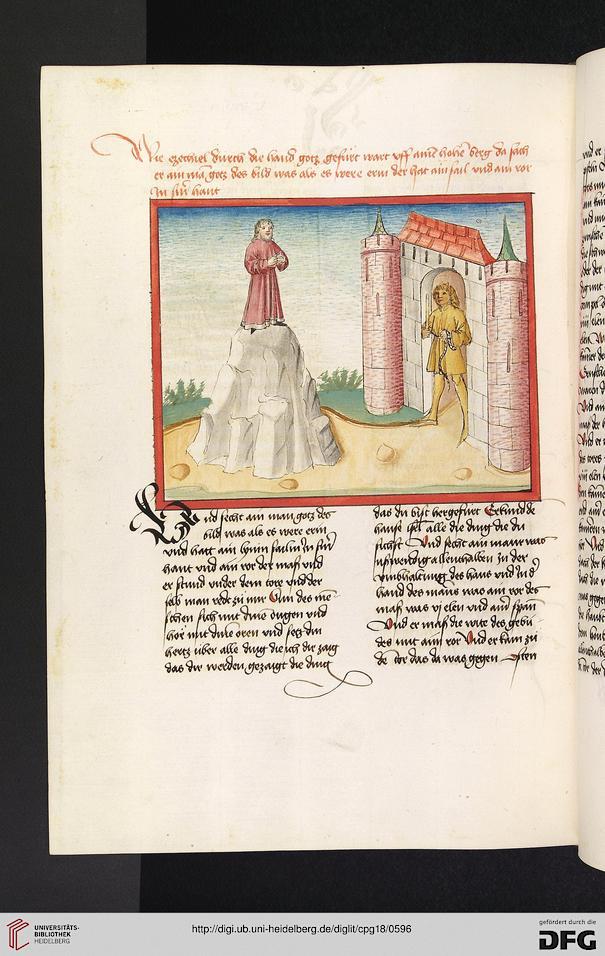 Wie ezechiel durch die hand gotz gefürt wart vff ainē hohē berg da sach
er ain mā gotz des bild was als es were erin der hat ain sail vnd ain ror
in sinr hant
Vnd secht ain man gotz des
bild was als es were erin
vnd hatt ain lynin sailin in sinr
hant vnd ain ror der mass vnd
er stund vnder dem tore vnd der
selb man redt zů mir Sun des mē
schen sich mit dinē ougen vnd
hör mit dinē oren vnd setz din
hertz über alle ding die ich dir zaig
das dir werden gezaigt die ding
das du bist hergefürt Erkünd dē
hause isrl alle die ding die du
sichst Vnd secht ain maur was
usswendig allenthalben in der
vmbhaltung des haus vnd in d
hand des mans was ain ror des
mass was vj elen vnd ainr span
Vnd er mass die wite des gebü
des mit aim ror Vnd er kam zů
dē tor das da was gegen Osten
UNIVERSITÄTS-
BIBLIOTHEK
HEIDELBERG
http://digi.ub.uni-heidelberg.de/diglit/cpg18/0596
gefördert durch die
DFG